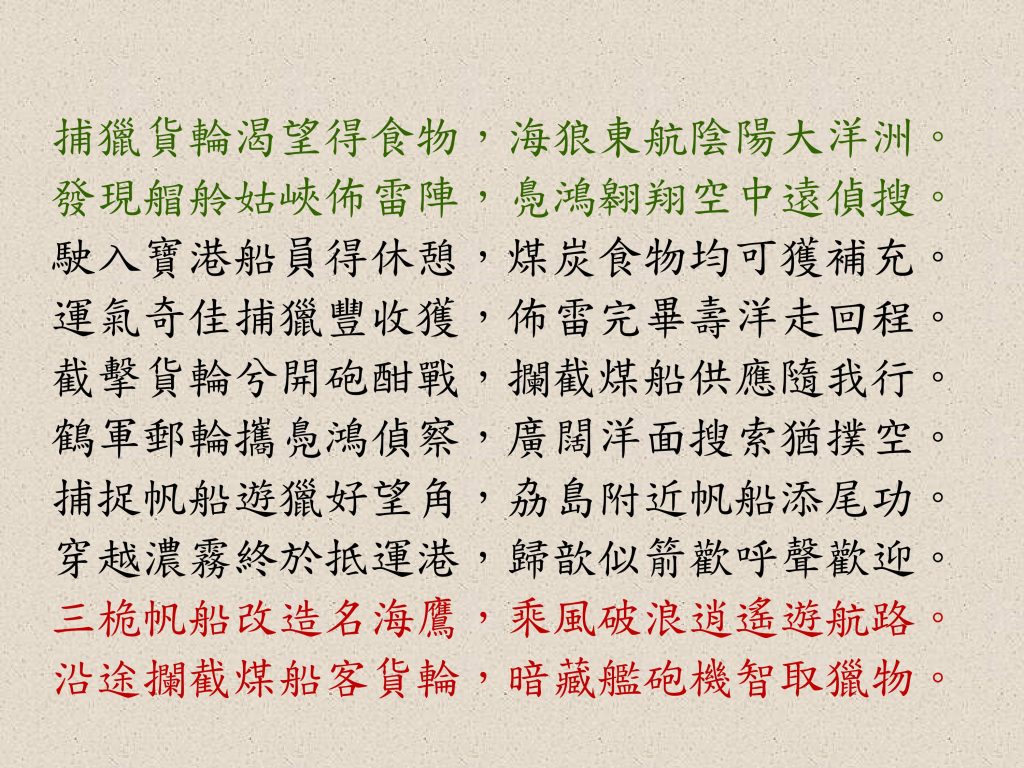 捕獵貨輪渴望得食物，海狼東航陰陽大洋洲。
發現艒舲姑峽佈雷陣，鳧鴻翱翔空中遠偵搜。
駛入寶港船員得休憩，煤炭食物均可獲補充。
運氣奇佳捕獵豐收獲，佈雷完畢壽洋走回程。
截擊貨輪兮開砲酣戰，攔截煤船供應隨我行。
鶴軍郵輪攜鳧鴻偵察，廣闊洋面搜索猶撲空。
捕捉帆船遊獵好望角，劦島附近帆船添尾功。
穿越濃霧終於抵運港，歸歆似箭歡呼聲歡迎。
三桅帆船改造名海鷹，乘風破浪逍遙遊航路。
沿途攔截煤船客貨輪，暗藏艦砲機智取獵物。